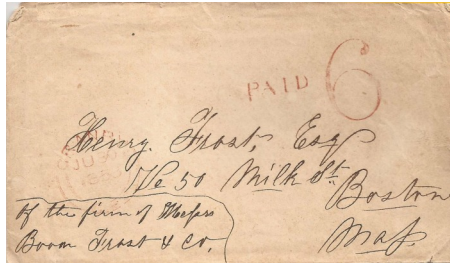 PAID 6
Henry. Frost, Esq
50 Milk St.
Boston
Mas.
of the firm of Messrs
Boom Frost & Co.